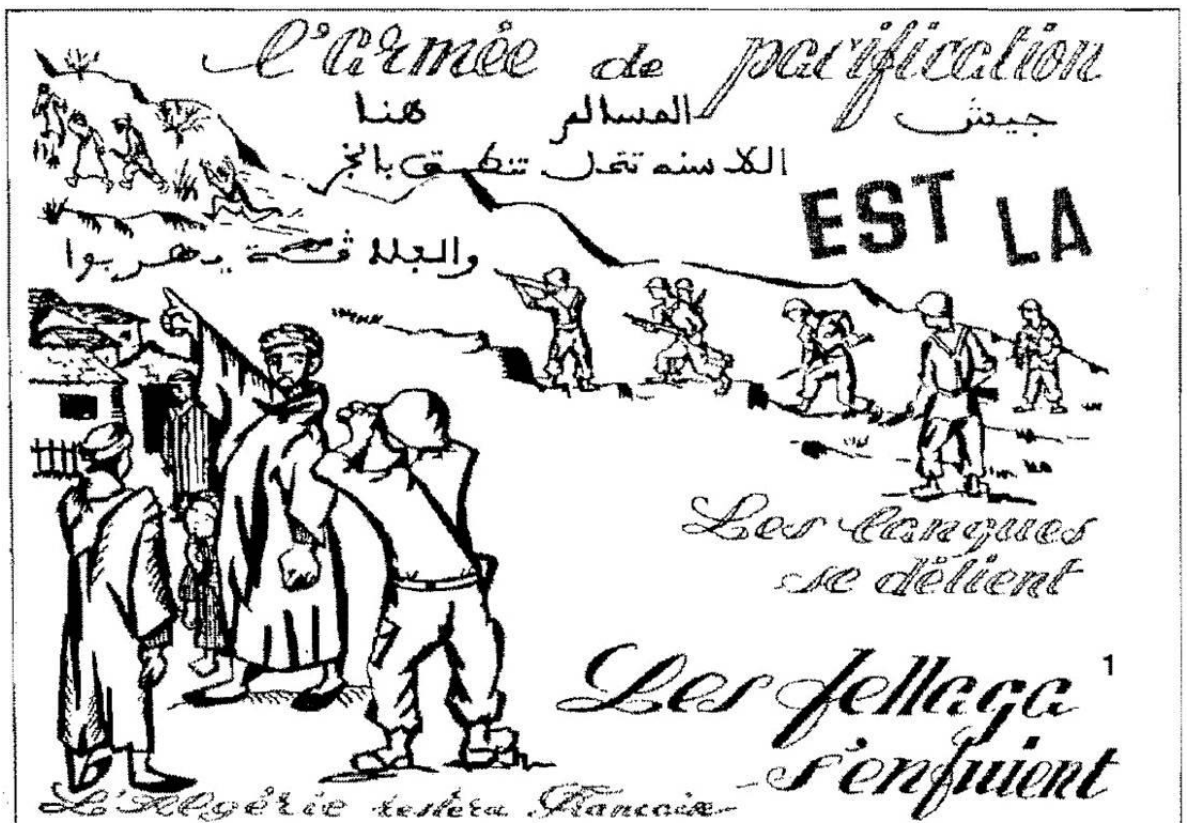 l'armée de pacification
جيش المسالم هنا
EST LA
والفلاقة يهربوا
Les langues
se délient
Les fellaga 1
s'enfuient
L'Algérie restera Française